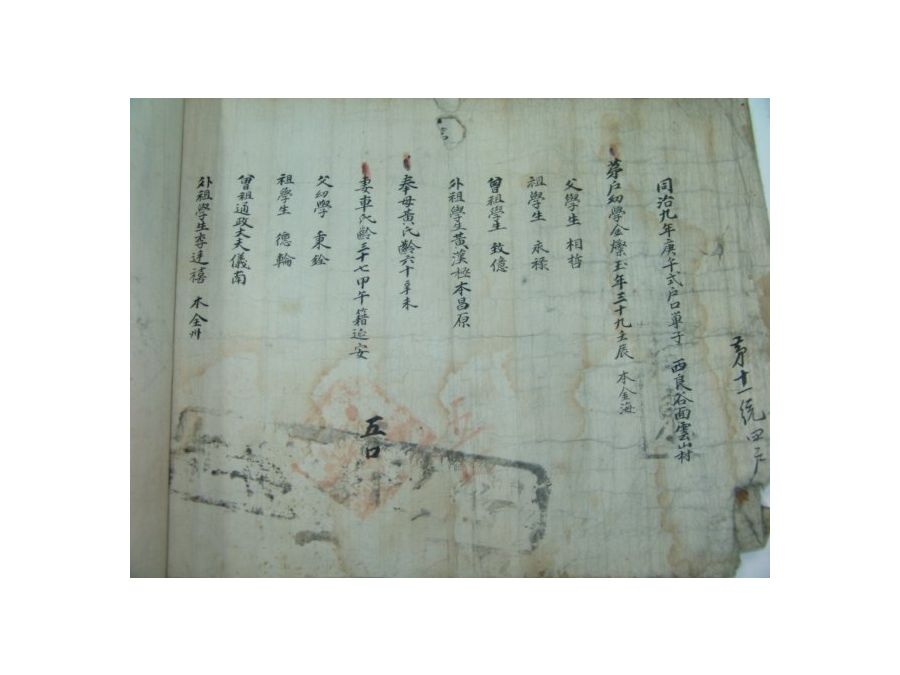 第十一統四戶
同治九年庚午式戶口單子 西良谷面雲山村
第 戶幼學金燦玉年三十九壬辰 本金海
父學生 相哲
祖學生 永祿
曾祖學生 致億
外祖學生黃漢極本昌原
奉母黃氏齡六十辛未
妻車氏齡三十七甲午籍延安
五口
父幼學 秉銓
祖學生 德輪
曾祖通政大夫儀南
外祖學生李廷禧 本全州